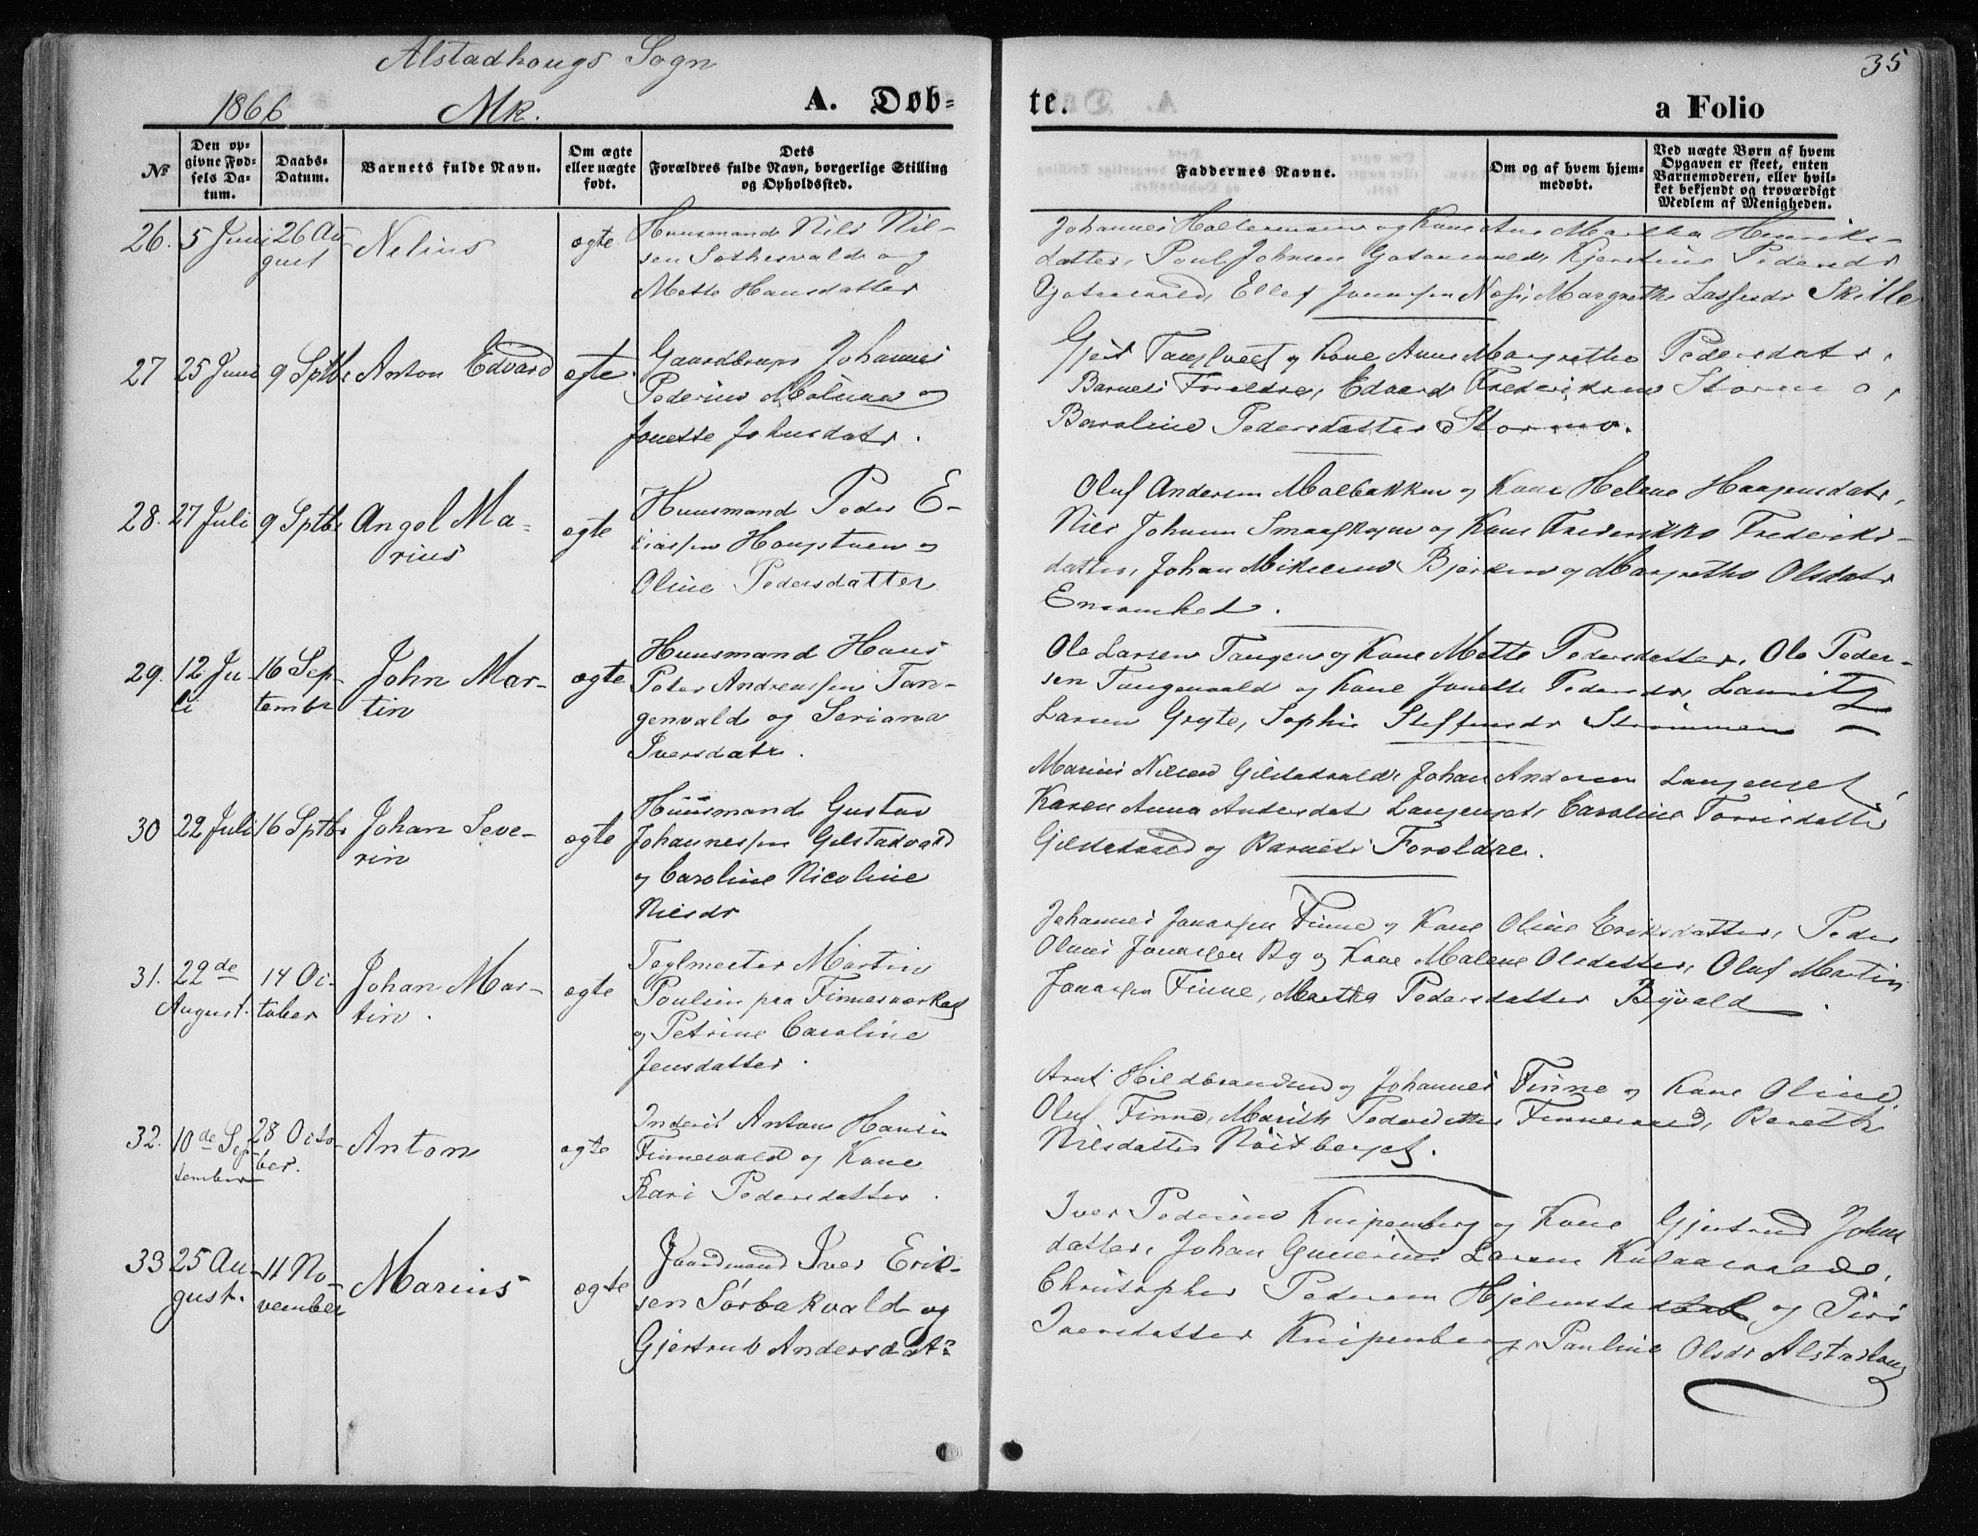 Alstadhougs Sogn
35
1866
Mk.
A. Døb=
te.
a Folio
No
Den op=
givne Fød=
sels Da=
tum.
Daabs=
Datum.
Barnets fulde Navn.
Om ægte
eller uægte
født.
Dets
Forældres fulde Navn, borgerlige Stilling
og Opholdssted.
Faddernes Navne.
Om og af hvem hjem=
medøbt.
Ved uægte Børn af hvem
Opgaven er skeet, enten
Barnemoderen, eller hvil=
ket bekjendt og troværdigt
Medlem af Menigheden.
26.
5 Juni
26 Au-
gust
Nelius
ægte
Huusmand Nils Nil-
sen og
Mette Hansdatter
Johannes Holtermann og Kone Ane Martha Henriks-
datter, Paul Johnsen Kjerstine Pedersdr
Ellef Jonassen Næss, Margrethe Lassesdr Skille
27
25 Juni
9 Sptbr
Anton Edvard
ægte
Gaardbruger Johannes
Pederius og
Jonette Johnsdatr.
Gjert og Kone Anne Margrethe Pedersdatr,
Barnets Forældre, Edvard Frederiksen Stormo,
Baroline Pedersdatter Stormo.
28.
27 Juli
9 Sptbr
Angel Ma-
rius
ægte
Huusmand Peder E-
liassen Hougstuen og
Oline Pedersdatter
Oluf Andersen Molbakken og Kone Helene Haagensdatr,
Nils Johnsen og Kone Frederikke Frederiks-
datter, Johan Mikelsen Bjerken og Margrethe Olsdatr
Ensomhed.
29.
12 Ju-
li
16 Sep-
tembr
John Mar-
tin
ægte
Huusmand Hans
Peter Andreassen Tan-
genvald og Seriana
Iversdatr.
Ole Larsen Tangen og Kone Mette Pedersdatter, Ole Peder-
sen Tangenvald og Kone Jonette Pedersdr, Lauritz
Larsen Gryte, Sophie Steffensdr Strømmen
30
22 Juli
16 Sptbr
Johan Seve-
rin
ægte
Huusmand Gustav
Johannessen Gilstadvald
og Caroline Nicoline
Nilsdr
Marius Nilsen Gilstadvald, Johan Andersen Langenget,
Karen Anna Andersdat Langenget, Caroline Tomisdatter
Gilstadvald og Barnets Forældre.
31.
22de
August.
14 Oc-
tober
Johan Mar-
tin.
ægte
Teglmester Martin
Poulsen paa Finnesværket
og Petrine Caroline
Jensdatter.
Johannes Jonassen Finne og Kone Oline Eriksdatter, Peder
Olaus Jonassen By og Kone Malene Olsdatter, Oluf Martin
Jonassen Finne, Martha Pedersdatter Byvald.
32.
10de Sep-
tember
28 Octo-
ber.
Anton
ægte
Inderst Anton Hansen
Finnesvald og Kone
Kari Pedersdatter.
Arnt Hildbrandsen og Johannes Finne og Kone Oline,
Oluf Finne, Marith Pedersdatter Finnesvald, Bereth
Nilsdatter
33
25 Au-
gust.
11 No-
vember
Marius
ægte
Gaardmand Iver Erik-
sen Sørbakvald og
Gjertrud Andersdatr
Iver Pedersen Knipenberg og Kone Gjertrud Johns
datter, Johan Gunerius Larsen
Christopher Pedersen Hjelmstad og Siri
Iversdatter Knipenberg, Pauline Olsdr Alstadhoug